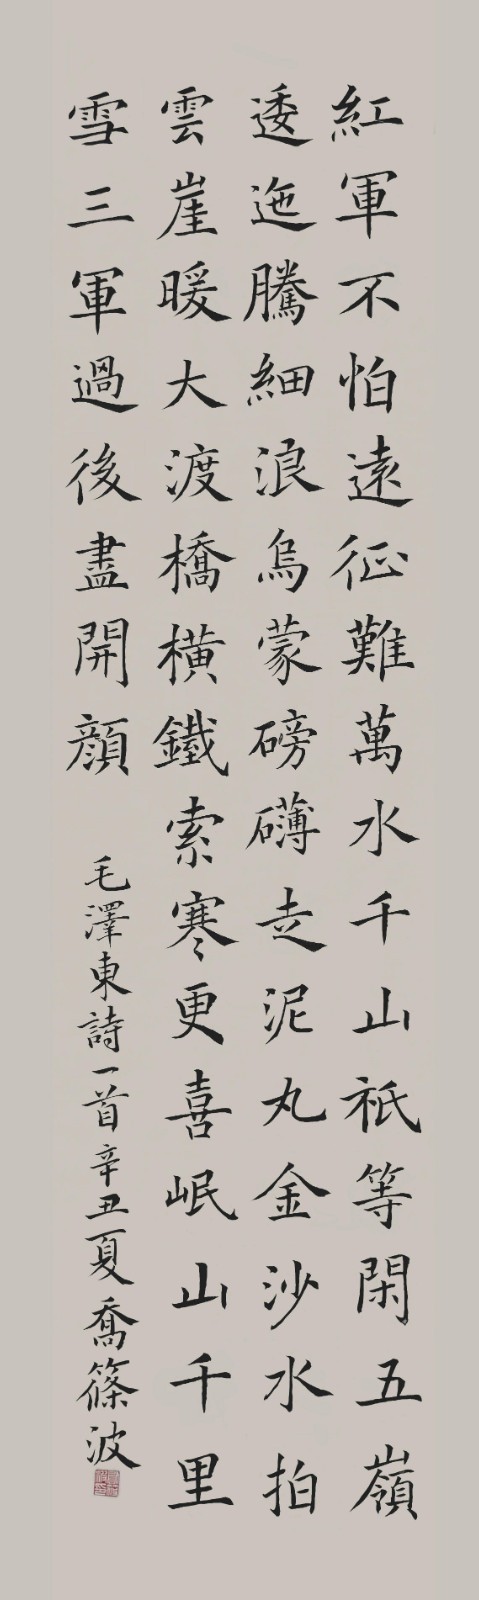 紅軍不怕遠征難萬水千山祇等閑五嶺
逶迤騰細浪烏蒙磅礴走泥丸金沙水拍
雲崖暖大渡橋橫鐵索寒更喜岷山千里
雪三軍過後盡開顏
毛澤東詩一首辛丑夏喬篠波